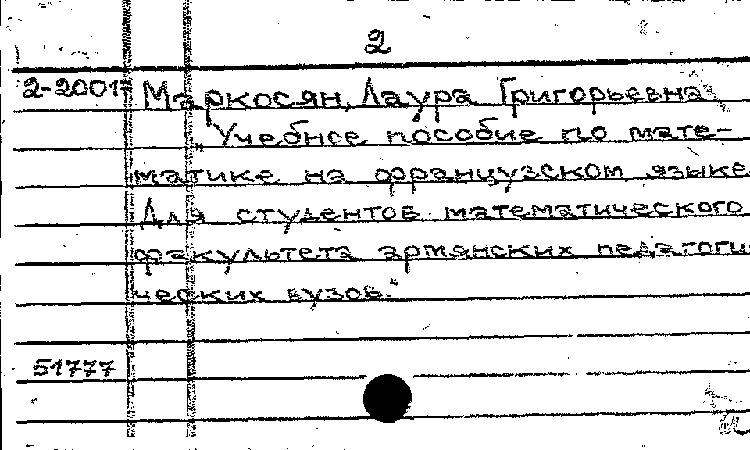 2
2-20017 Маркосян, Лаура Григорьевна
„Учебное пособие по мате-
матике на французском языке
Для студентов математического
факультета армянских педагоги-
ческих вузов."
51777